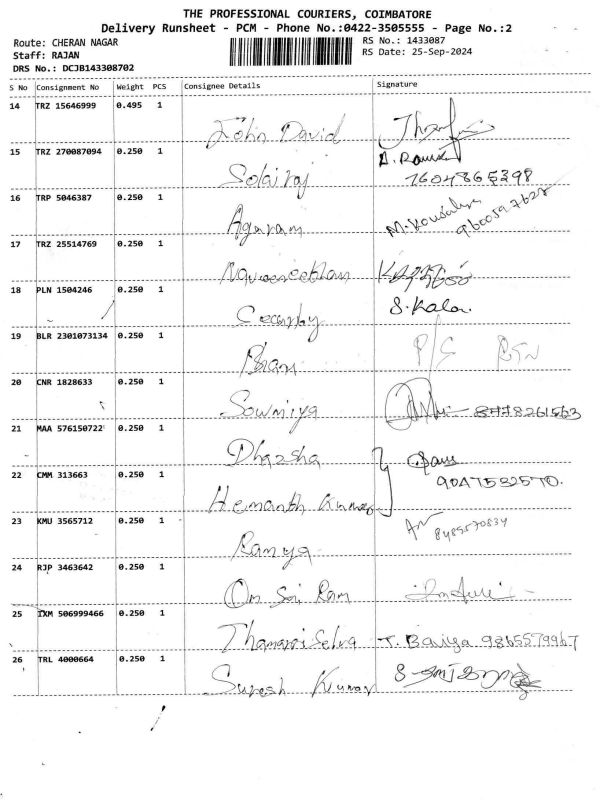 THE PROFESSIONAL COURIERS, COIMBATORE
Delivery Runsheet - PCM - Phone No.:0422-3505555 - Page No.:2
Route: CHERAN NAGAR
Staff: RAJAN
DRS No.: DCJB143308702
RS No.: 1433087
RS Date: 25-Sep-2024
S No Consignment No Weight PCS Consignee Details Signature
14 TRZ 15646999 0.495 1 John David
15 TRZ 270087094 0.250 1 Solairaj
7604865398
16 TRP 5046387 0.250 1 Agaram M. Kousalya
9600597628
17 TRZ 25514769 0.250 1
18 PLN 1504246 0.250 1 S. Kala
19 BLR 2301073134 0.250 1 P/C RTN
20 CNR 1828633 0.250 1 Sowmiya 8778261563
21 MAA 576150722 0.250 1 Dharsha
22 CMM 313663 0.250 1 Hemanth Kumar 9047532570.
23 KMU 3565712 0.250 1 Ramya 8489570834
24 RJP 3463642 0.250 1 Om Sai Ram
25 IXM 506999466 0.250 1 Thamarai Selva T. Baiya 9865579967
26 TRL 4000664 0.250 1 Suresh Kumar